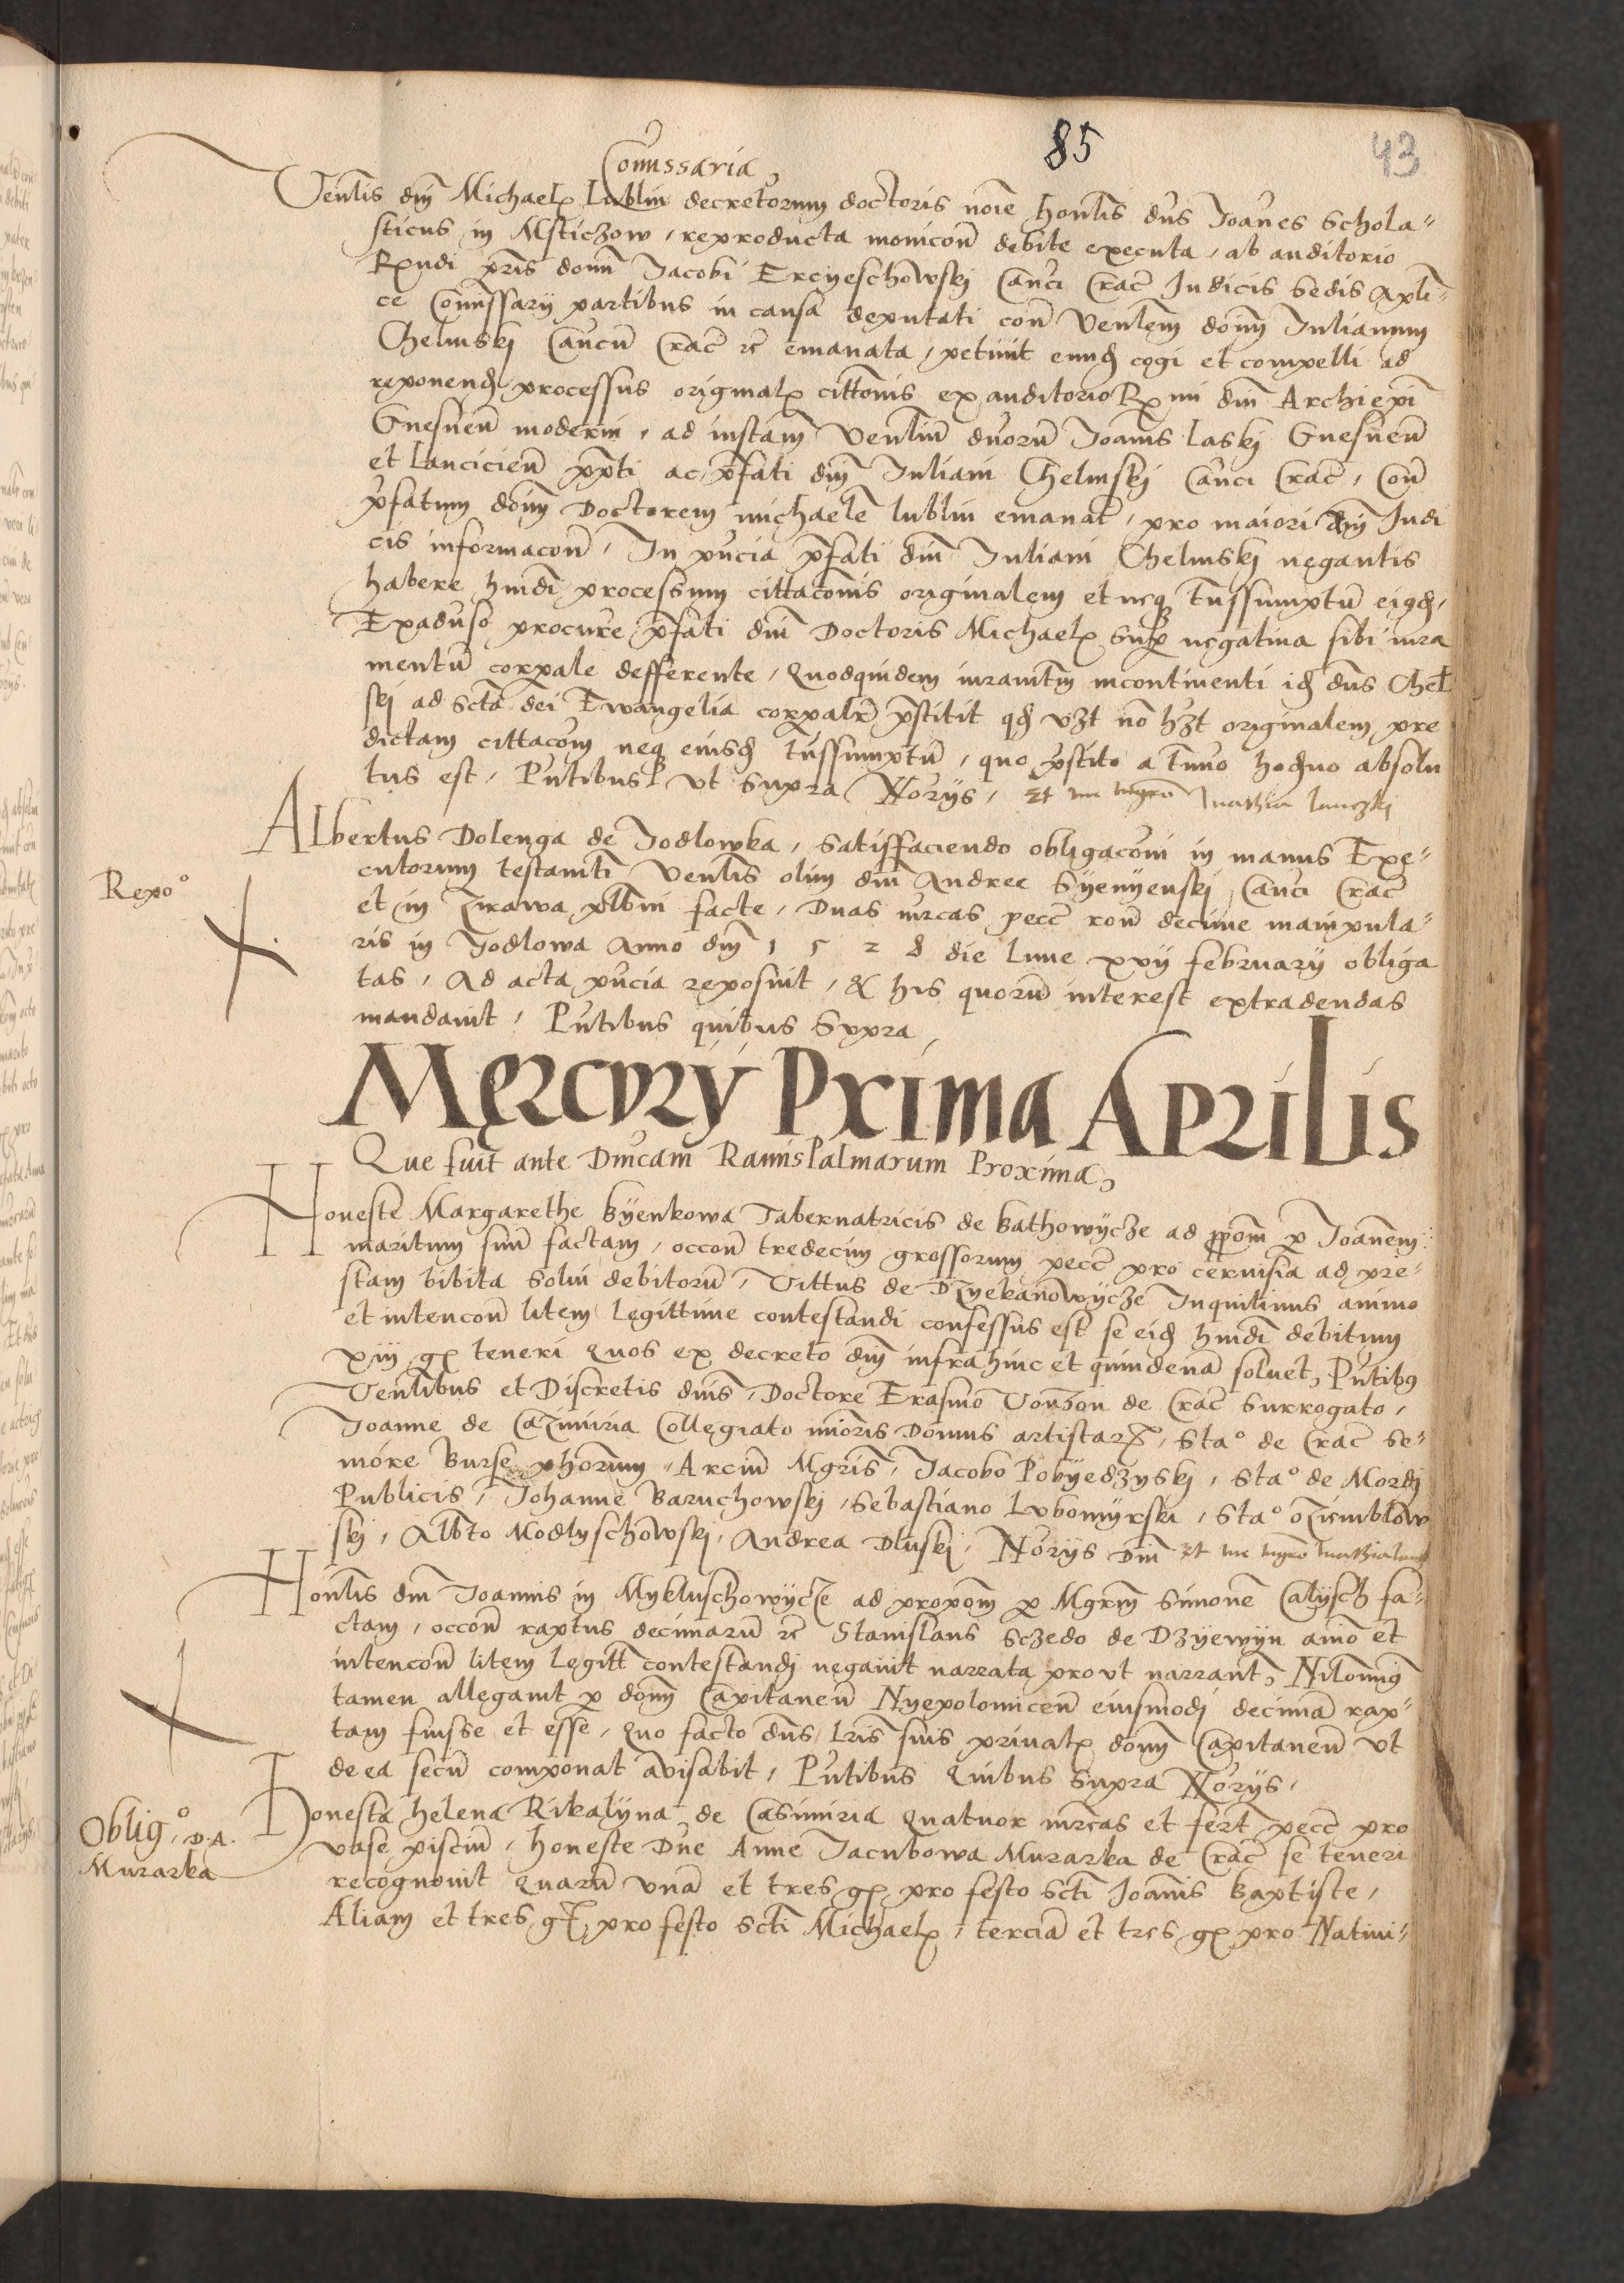 85
43
Comissaria
Venlis dni Michaelis Lublin decretorum doctoris noie honlis dns Joanes Schola-
sticus in Msticzow, reproducta monicon debite executa, ab auditorio
Rxndi pris domi Jacobi Erczyeschowskj Canci Crac Judicis Sedis Aplī-
ce Comissarij partibus in causa deputati con Venlem domi Julianum
Chelmskj Cancū Crac rc emanata, petiuit eund cogi et compelli ad
reponend processus originalis cittonis ex auditorio Rxmi dni Archiepi
Gnesnen moderni, ad instam Venlium duorū Joanis Laskj Gnesnen
et Lancicien ppti ac pfati dni Juliani Chelmskj Canci Crac, Con
pfatum domi Doctorem michaele lublin emanat, pro maiori dni Judi
cis informacon, In pncia pfati dni Juliani Chelmskj negantis
habere hmdi processum cittaconis originalem et neqz tnssumptū eiqd,
Exaduso procure pfati dni Doctoris Michaelis sup negatiua sibi iura
mentū corpale defferente, Quodquidem iuramtm incontinenti id dns Chel
skj ad scta dei Ewangelia corpalr pstitit qd vzt no hzt originalem pre
dictam cittacom neq eiusd tnssumptū, quo pstito a tmno hodno absolu
tus est, Pntibus vt supra Norijs, Et me mgro Mathia lanczkj
Albertus Dolenga de Jodlowka, satisffaciendo obligaconi in manus Exe-
cutorum testamti Venlis olim dni Andree Syenyenskj Canci Crac
Repo°
et in Zirawa plbni facte, Duas mrcas pecc ron decime manipula-
ris in Jodlowa Anno dni 1 5 2 8 die Lune xvij february obliga
tas, Ad acta pncia reposuit, & his quorū interest extradendas
mandauit, Pntibus quibus Supra,
Mercvrÿ Prima Aprilis
Que fuit ante Dnicam RamisPalmarum Proxima,
Honeste Margarethe Kyenkowa Tabernatricis de Kathowycze ad ppom p Joanem
maritum suū factam, occon tredecim grossorum pecc pro ceruisia ad pre-
stam bibita Solui debitorū, Vittus de Dzyekanowycze Inquilinus animo
et intencon litem legittime contestandi confessus est se eid hmdi debitum
xiij gr teneri Quos ex decreto dni infra hinc et quindena soluet, Pntibz
Venlibus et Discretis dnis, Doctore Erasmo Vonzon de Crac Surrogato,
Joanne de Cazimiria Collegiato mioris Domus artistarz, Sta° de Crac Se-
niore Burse phorum Arcium Mgris, Jacobo Pobyedzyskj, Sta° de Mordj
Publicis, Johanne Baruchowskj, Sebastiano Lubomyrskj, Sta° oziemblow
skj, Albto Modlyschowskj, Andrea Dluskj, Norijs Dni Et me mgro mathialancz
Honlis dni Joannis in Mykluschowycze ad propom p Mgrm Simone Calysch fa-
ctam, occon raptus decimarū rc Stanislaus Sczedo de Dzyewyn aimo et
intencon litem legitt contestandj negauit narrata prout narrant, Nilomig
tamen allegauit p domi Capitaneū Nyepolomicen eiusmodj decima rap-
tam fuisse et esse, Quo facto dns lris suis priuatis domi Capitaneū vt
de ea secū componat auisabit, Pntibus Quibus supra Norijs,
Oblig° D.A.
Murarka
Honesta helena Rikalyna de Casimiria Quatuor mrcas et fert pecc pro
vase pisciū, honeste Dne Anne Jacubowa Murarka de Crac se teneri
recognouit Quarū vna et tres gr pro festo scti Joanis Baptiste,
Aliam et tres gr pro festo scti Michaelis, tercia et tres gr pro Natiui-